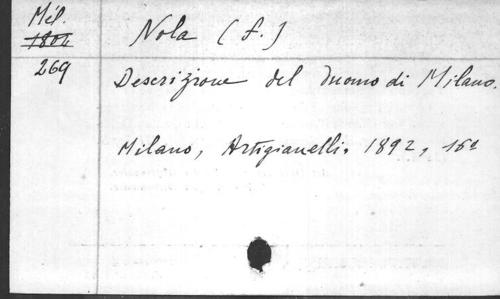 Mil.
1804
269
Nola (f.)
Descrizione del duomo di Milano.
Milano, Artigianelli. 1892, 16º